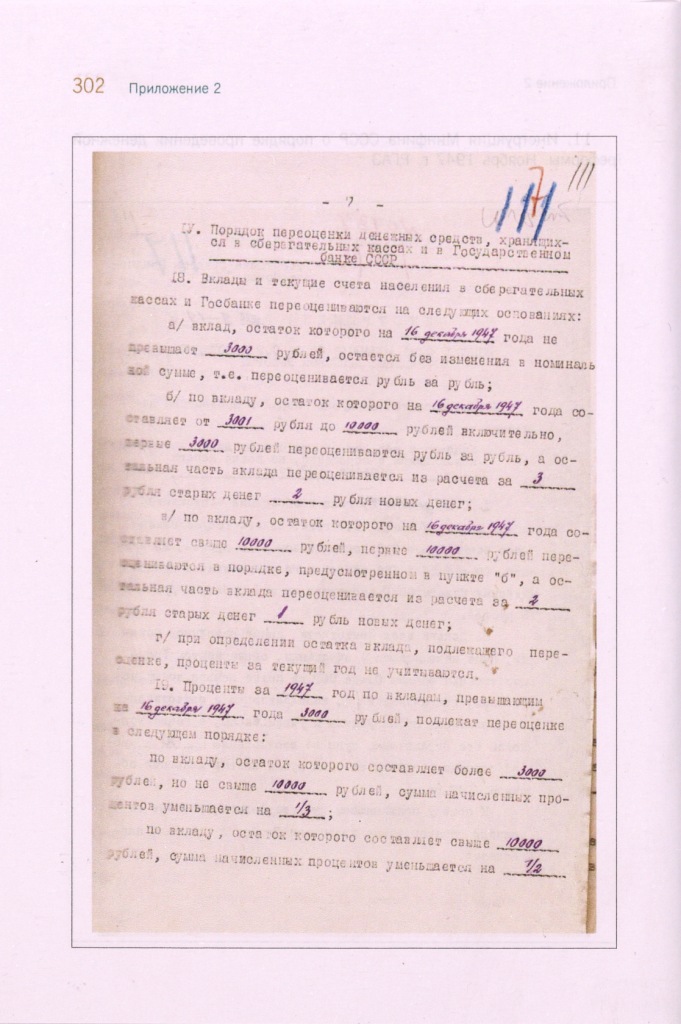 302 Приложение 2
- 7 -
117
111
IУ. Порядок переоценки денежных средств, хранящих-
ся в сберегательных кассах и в Государственном
банке СССР
18. Вклады и текущие счета населения в сберегательных
кассах и Госбанке переоцениваются на следующих основаниях:
а/ вклад, остаток которого на 16 декабря 1947 года не
превышает 3000 рублей, остается без изменения в номиналь
ной сумме, т.е. переоценивается рубль за рубль;
б/ по вкладу, остаток которого на 16 декабря 1947 года со-
ставляет от 3001 рубля до 10000 рублей включительно,
первые 3000 рублей переоцениваются рубль за рубль, а ос-
тальная часть вклада переоценивается из расчета за 3
рубля старых денег 2 рубля новых денег;
в/ по вкладу, остаток которого на 16 декабря 1947 года со-
ставляет свыше 10000 рублей, первые 10000 рублей пере-
оцениваются в порядке, предусмотренном в пункте "б", а ос-
тальная часть вклада переоценивается из расчета за 2
рубля старых денег 1 рубль новых денег;
г/ при определении остатка вклада, подлежащего пере-
оценке, проценты за текущий год не учитываются.
19. Проценты за 1947 год по вкладам, превышающим
на 16 декабря 1947 года 3000 рублей, подлежат переоценке
в следующем порядке:
по вкладу, остаток которого составляет более 3000
рублей, но не свыше 10000 рублей, сумма начисленных про-
центов уменьшается на 1/3;
по вкладу, остаток которого составляет свыше 10000
рублей, сумма начисленных процентов уменьшается на 1/2